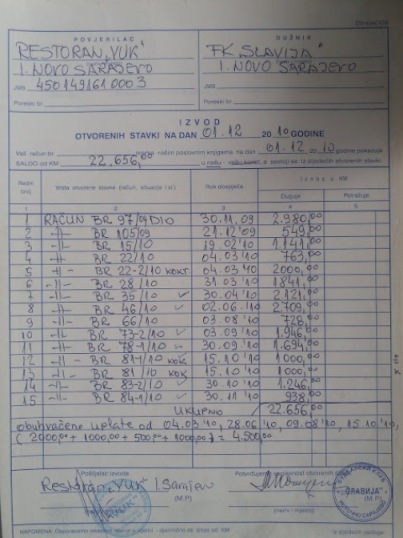 POVJERILAC
RESTORAN „VUK"
I. NOVO SARAJEVO
JIB 4501491610003
Poreski br.
DUŽNIK
FK „SLAVIJA"
I. NOVO SARAJEVO
JIB
Poreski br.
IZVOD
OTVORENIH STAVKI NA DAN 01.12 2010 GODINE
Vaš račun br. prema našim poslovnim knjigama na dan 01.12 2010 godine pokazuje
SALDO od KM 22.656,00 u našu
Redni broj Vrsta otvorene stavke (račun, situacija i sl.) Rok dospijeća Iznos u KM
Duguje Potražuje
1 2 3 4 5
1 RAČUN BR 97/09 DIO 30.11.09 2.980,00
2 -||- BR 105/09 21.12'09 549,00
3 -||- BR 15/10 19.02'10 1.141,00
4 -||- BR 22/10 04.03'10 763,00
5 -||- BR 22-2/10 КОКТ. 04.03'10 2000,00
6 -||- BR 28/10 31.03'10 1841,00
7 -||- BR 35/10 30.04'10 2.121,00
8 -||- BR 46/10 02.06'10 2.709,00
9 -||- BR 66/10 03.08'10 728,00
10 -||- BR 73-2/10 03.09'10 1.946,00
11 -||- BR 78-1/10 30.09'10 1.694,00
12 -||- BR 81-1/10 15.10'10 1000,00
13 -||- BR 81/10 15.10'10 1000,00
14 -||- BR 83-2/10 30.10'10 1.246,00
15 -||- BR 84-1/10 30.11'10 938,00
UKUPNO 22.656,00
obuhvaćene uplate od 04.03'10, 28.06'10, 09.08'10, 15.10'10,
(2000,00 + 1000,00 + 500,00 + 1000,00) = 4.500,00
Pošiljalac izvoda
Restoran „VUK" I. Sarajevo
(M.P.)
(M.P.)